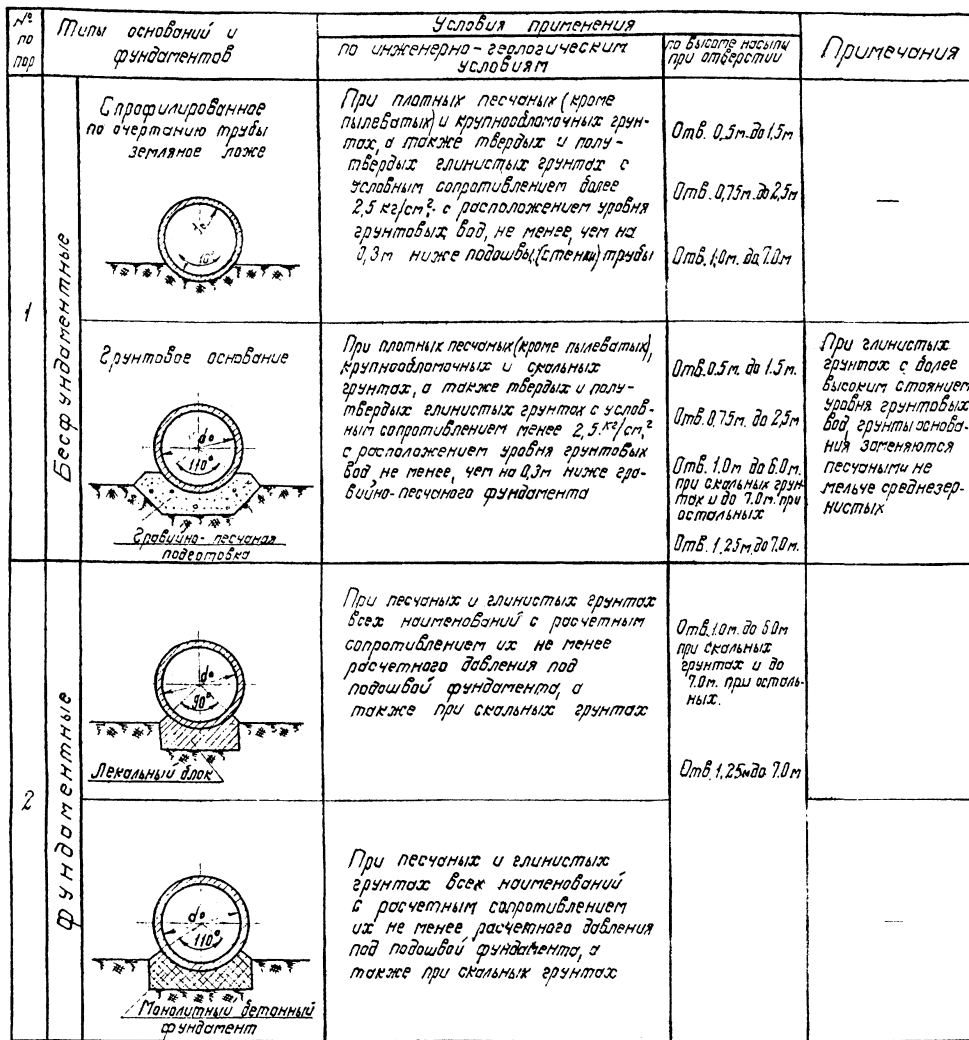 № по пор
Типы оснований и
фундаментов
Условия применения
по инженерно-геологическим
условиям
по высоте насыпи
при отверстии
Примечания
1
Бесфундаментные
Спрофилированное
по очертанию трубы
земляное ложе
При плотных песчаных (кроме
пылеватых) и крупнообломочных грун-
тах, а также твердых и полу-
твердых глинистых грунтах с
условным сопротивлением более
2,5 кг/см², с расположением уровня
грунтовых вод, не менее, чем на
0,3м ниже подошвы (стенки) трубы
Отв. 0,5м. до 1,5м
Отв. 0,75м. до 2,5м
Отв. 1,0м. до 7.0м
—
Грунтовое основание
d°
110°
Гравийно-песчаная
подготовка
При плотных песчаных (кроме пылеватых),
крупнообломочных и скальных
грунтах, а также твердых и полу-
твердых глинистых грунтах с услов-
ным сопротивлением менее 2,5 кг/см²
с расположением уровня грунтовых
вод не менее, чем на 0,3м ниже гра-
вийно-песчаного фундамента
Отв. 0.5м. до 1.5м.
Отв. 0.75м. до 2,5м
Отв. 1.0м до 6.0м.
при скальных грун-
тах и до 7.0м. при
остальных
Отв. 1,25м, до 7.0м.
При глинистых
грунтах с более
высоким стоянием
уровня грунтовых
вод, грунты основа-
ния заменяются
песчаными не
мельче среднезер-
нистых
2
Фундаментные
d°
90°
Лекальный блок
При песчаных и глинистых грунтах
всех наименований с расчетным
сопротивлением их не менее
расчетного давления под
подошвой фундамента, а
также при скальных грунтах
Отв. 1.0м. до 5.0м
при скальных
грунтах и до
7.0м. при осталь-
ных.
Отв. 1,25м до 7.0м
d°
110°
Монолитный бетонный
фундамент
При песчаных и глинистых
грунтах всех наименований
с расчетным сопротивлением
их не менее расчетного давления
под подошвой фундамента, а
также при скальных грунтах
—